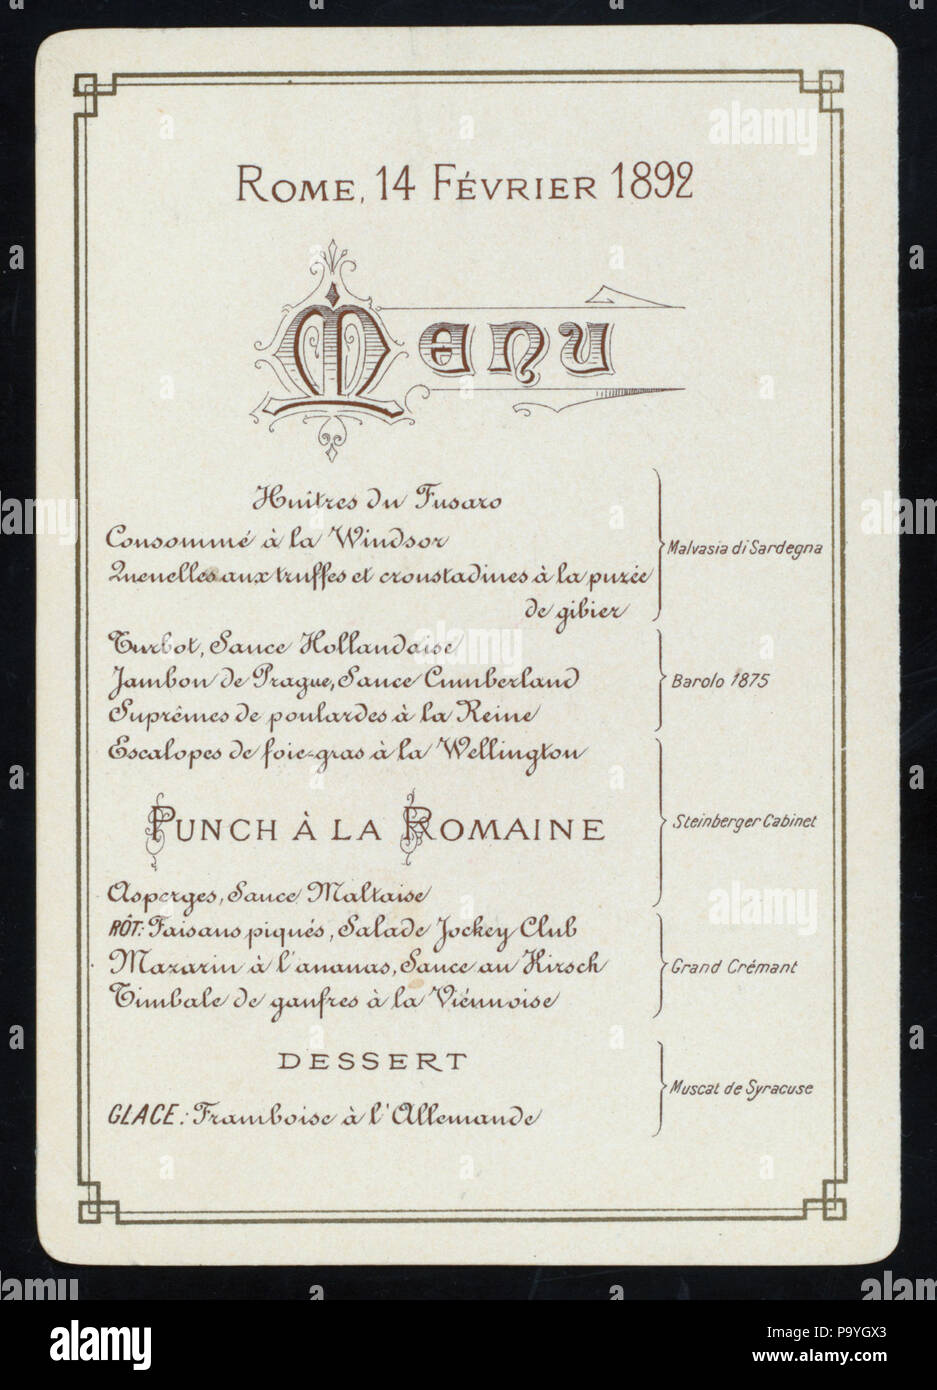 ROME, 14 FÉVRIER 1892
MENU
Huîtres du Fusaro
Consommé à la Windsor
Quenelles aux truffes et croustadines à la purée
de gibier
Malvasia di Sardegna
Turbot, Sauce Hollandaise
Jambon de Prague, Sauce Cumberland
Suprêmes de poulardes à la Reine
Barolo 1875
Escalopes de foie-gras à la Wellington
PUNCH À LA ROMAINE
Asperges, Sauce Maltaise
Steinberger Cabinet
RÔT: Faisans piqués, Salade Jockey Club
Mazarin à l'ananas, Sauce au Kirsch
Timbale de gaufres à la Viénnoise
Grand Crémant
DESSERT
GLACE: Framboise à l'Allemande
Muscat de Syracuse
alamy
Image ID: P9YGX3
www.alamy.com